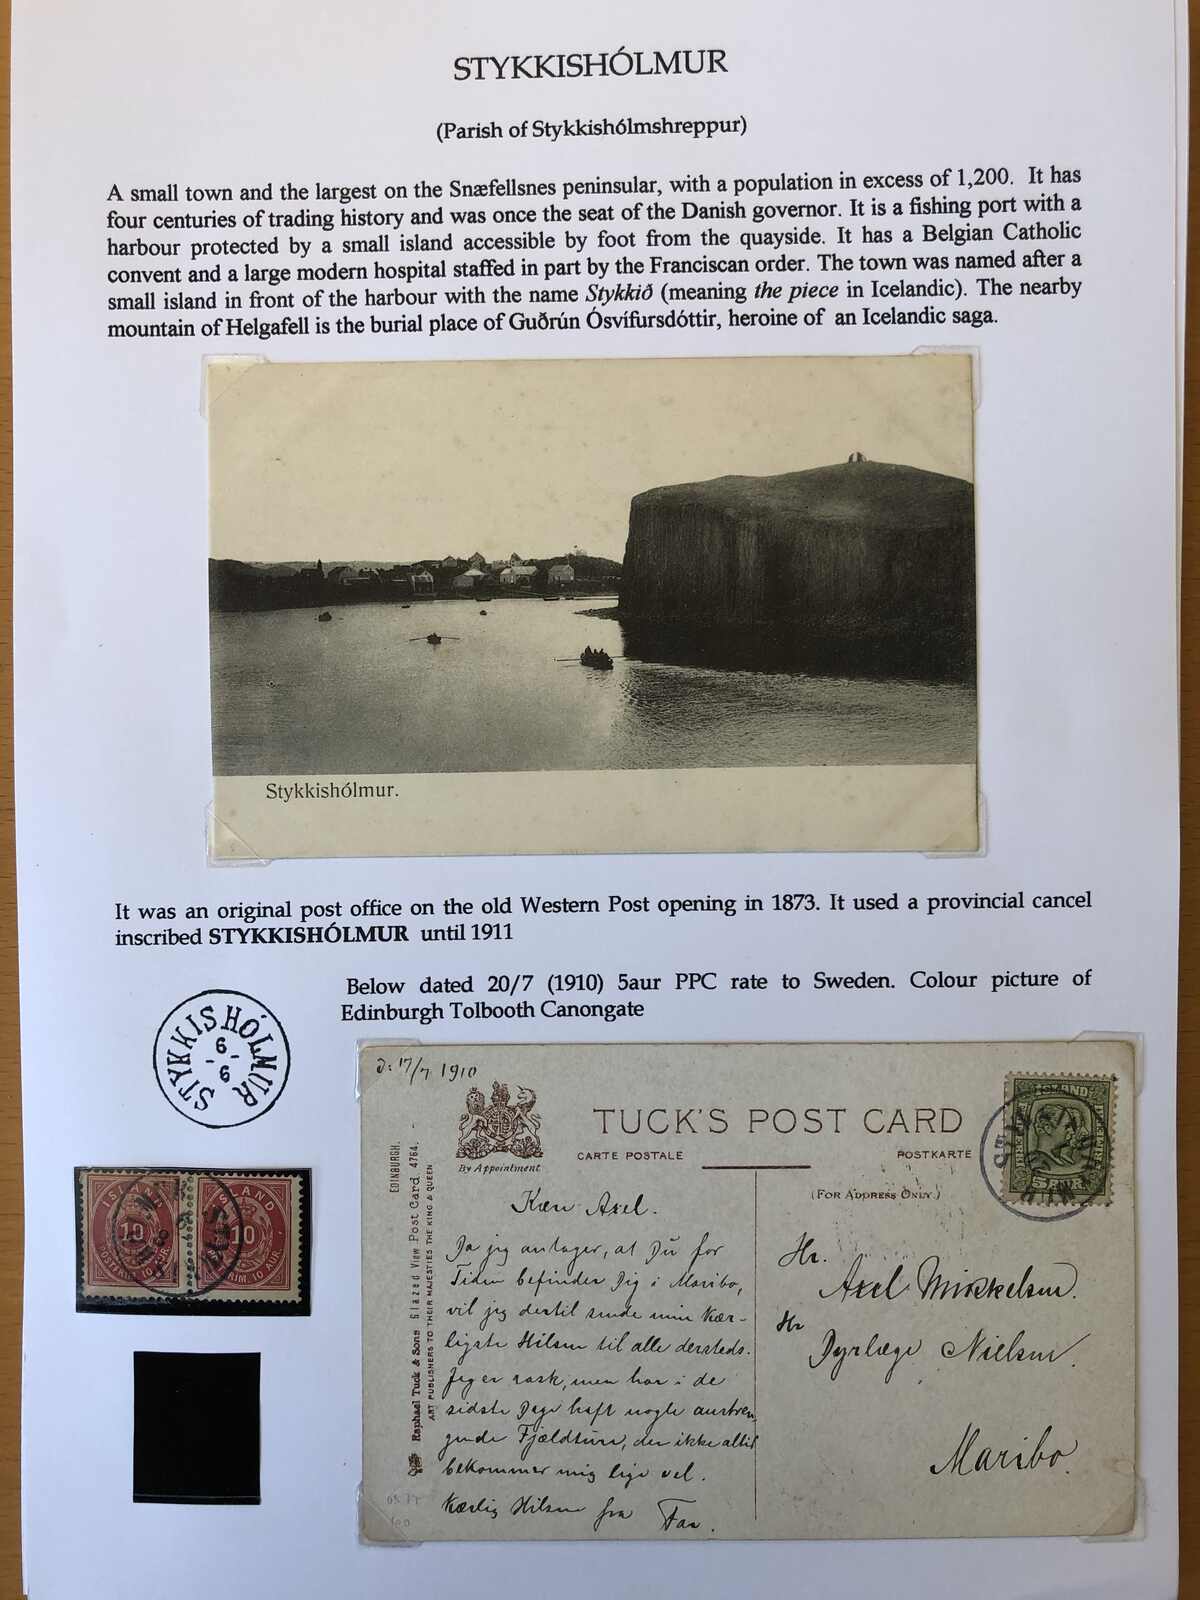 STYKKISHÓLMUR
(Parish of Stykkishólmshreppur)
A small town and the largest on the Snæfellsnes peninsular, with a population in excess of 1,200. It has
four centuries of trading history and was once the seat of the Danish governor. It is a fishing port with a
harbour protected by a small island accessible by foot from the quayside. It has a Belgian Catholic
convent and a large modern hospital staffed in part by the Franciscan order. The town was named after a
small island in front of the harbour with the name Stykkið (meaning the piece in Icelandic). The nearby
mountain of Helgafell is the burial place of Guðrún Ósvífursdóttir, heroine of an Icelandic saga.
Stykkishólmur.
It was an original post office on the old Western Post opening in 1873. It used a provincial cancel
inscribed STYKKISHÓLMUR until 1911
Below dated 20/7 (1910) 5aur PPC rate to Sweden. Colour picture of
Edinburgh Tolbooth Canongate
STYKKISHÓLMUR
6
6
ISLAND
10
ISLAND
10
d: 17/7 1910
By Appointment
TUCK'S POST CARD
CARTE POSTALE
POSTKARTE
(FOR ADDRESS ONLY.)
EDINBURGH.
Raphael Tuck & Sons Glazed View Post Card 4764.
ART PUBLISHERS TO THEIR MAJESTIES THE KING & QUEEN
ISLAND
5 AUR
Kære Axel.
Da jeg antager, at Du for
Tiden befinder Dig i Maribo,
vil jeg dertil sende min Kær-
ligste Hilsen til alle dersteds.
Jeg er rask, men har i de
sidste Dage haft nogle anstren-
gende Fjældture, der ikke altid
bekommer mig lige vel.
Kærlig Hilsen fra Far.
Hr.
Axel Mikkelsen.
Hr
Dyrlæge Nielsen.
Maribo